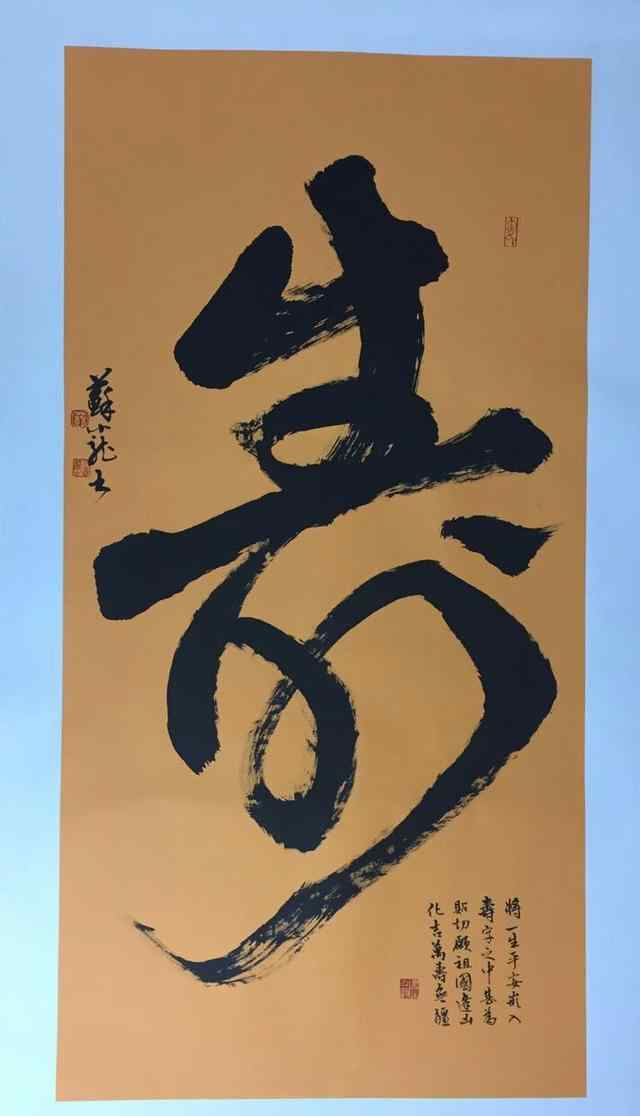 寿
將一生平安嵌入
壽字之中甚為
貼切願祖國逢凶
化吉萬壽無疆
蘇小龍书